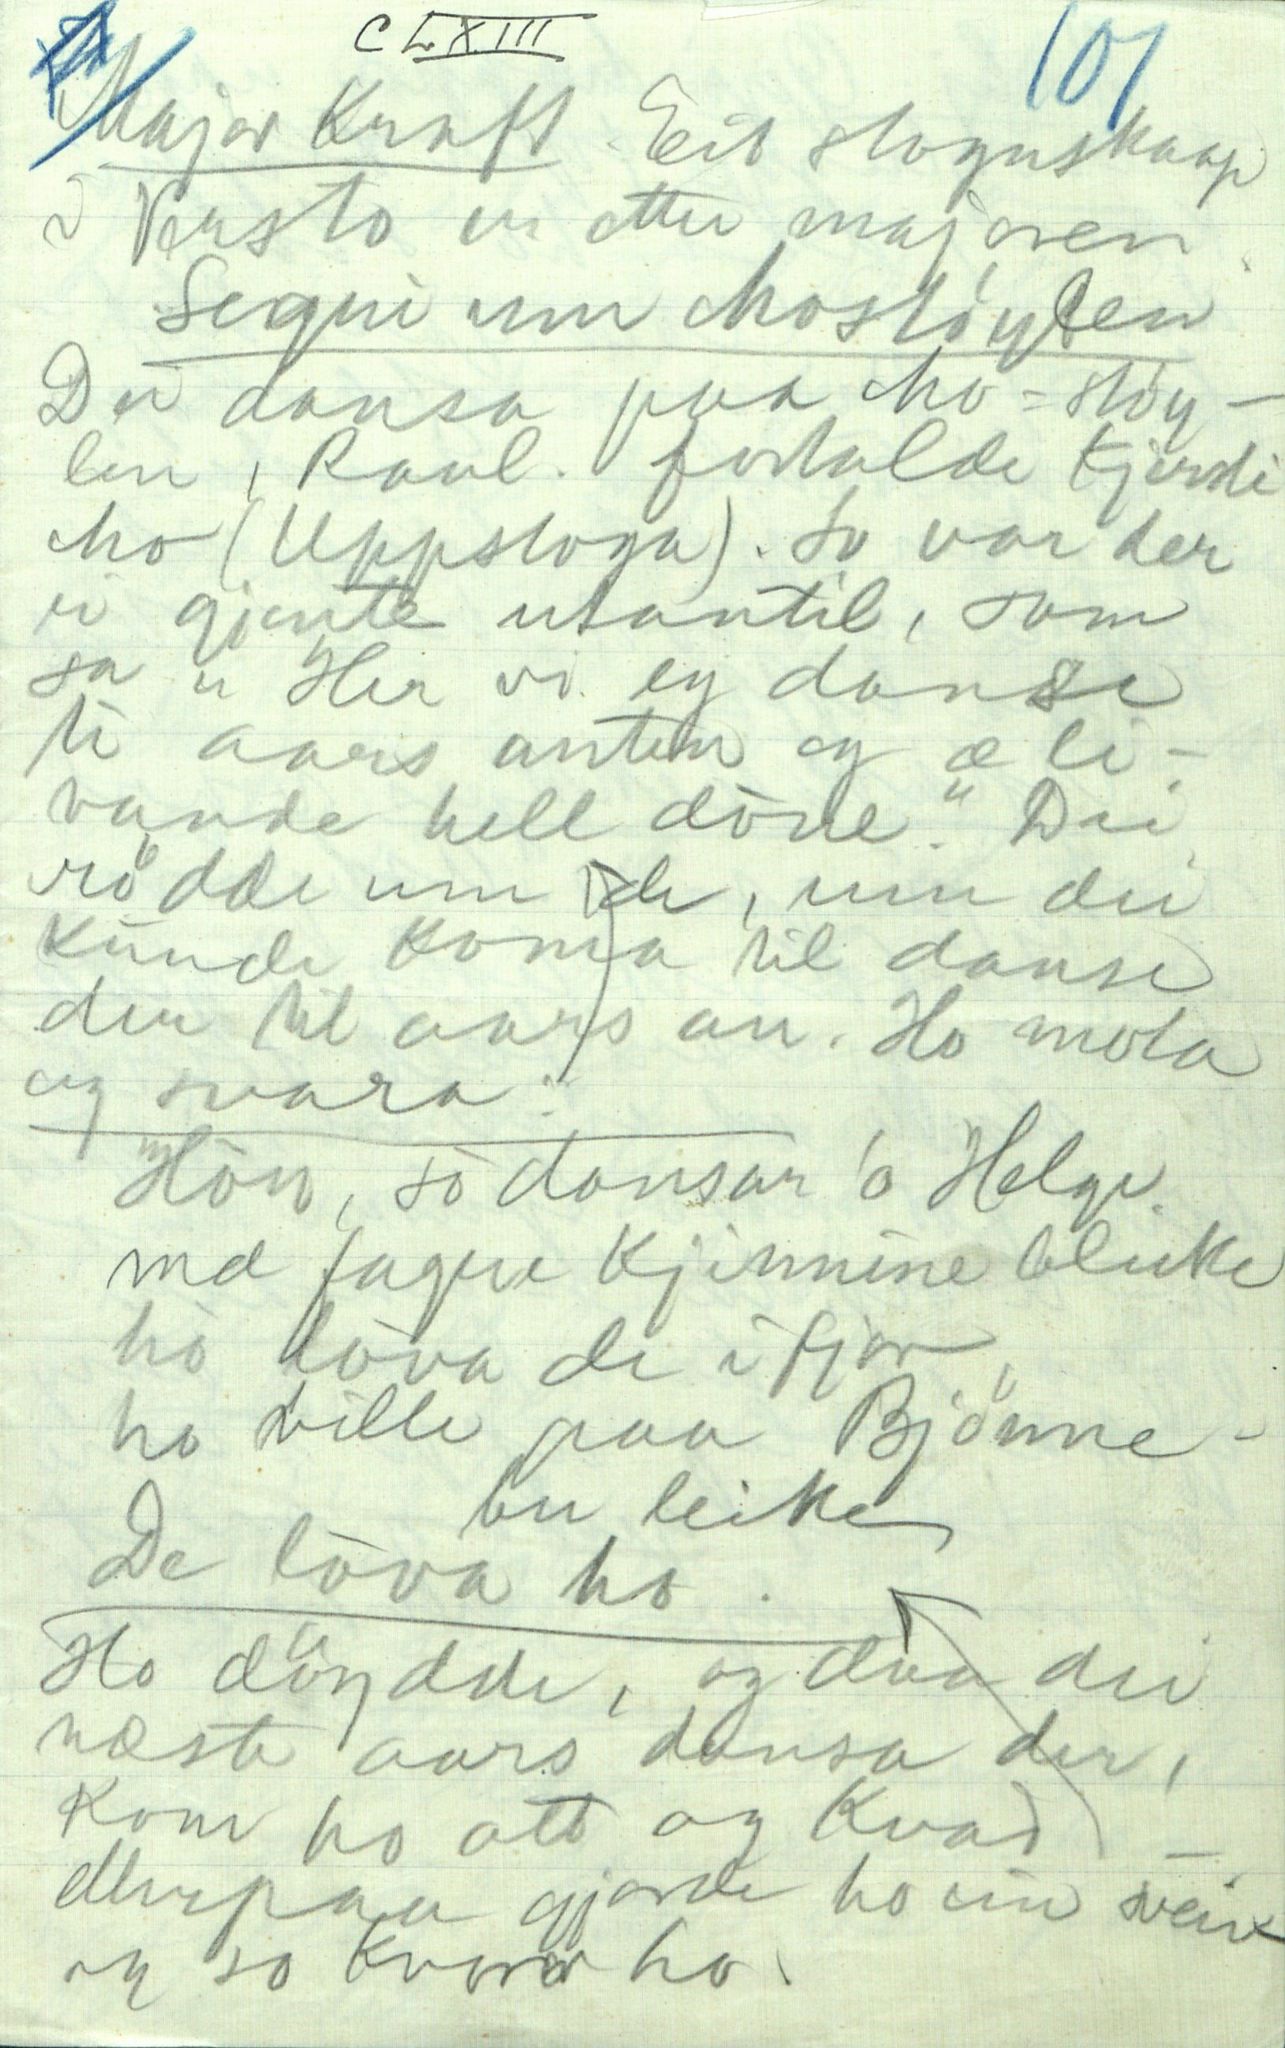 CLXIII
101
Major Kraft Eit stoguskaap
i Versto er etter majoren.
Segni um Mostøylen
Dei dansa paa Mo=støy-
len, Raul. fortalde Kjersti
Mo (Uppstoga). So var der
ei gjente utantil, som
sa "Her vi eg danse
ti aars anten eg æ li-
vande hell döne." Dei
rödde um de, um dei
kunde koma til danse
der til aars an. Ho mota
og svara:
"Hön, so dansar o Helge
md fagre Kjinnine bleike
ho lova de i fjor,
ho ville paa Bjönne-
bu leike
De lova ho.
Ho döydde, og daa dei
næste aars dansa der,
kom ho att og kvad –
Derpaa gjorde ho ein sveiv
og so kvarv ho.